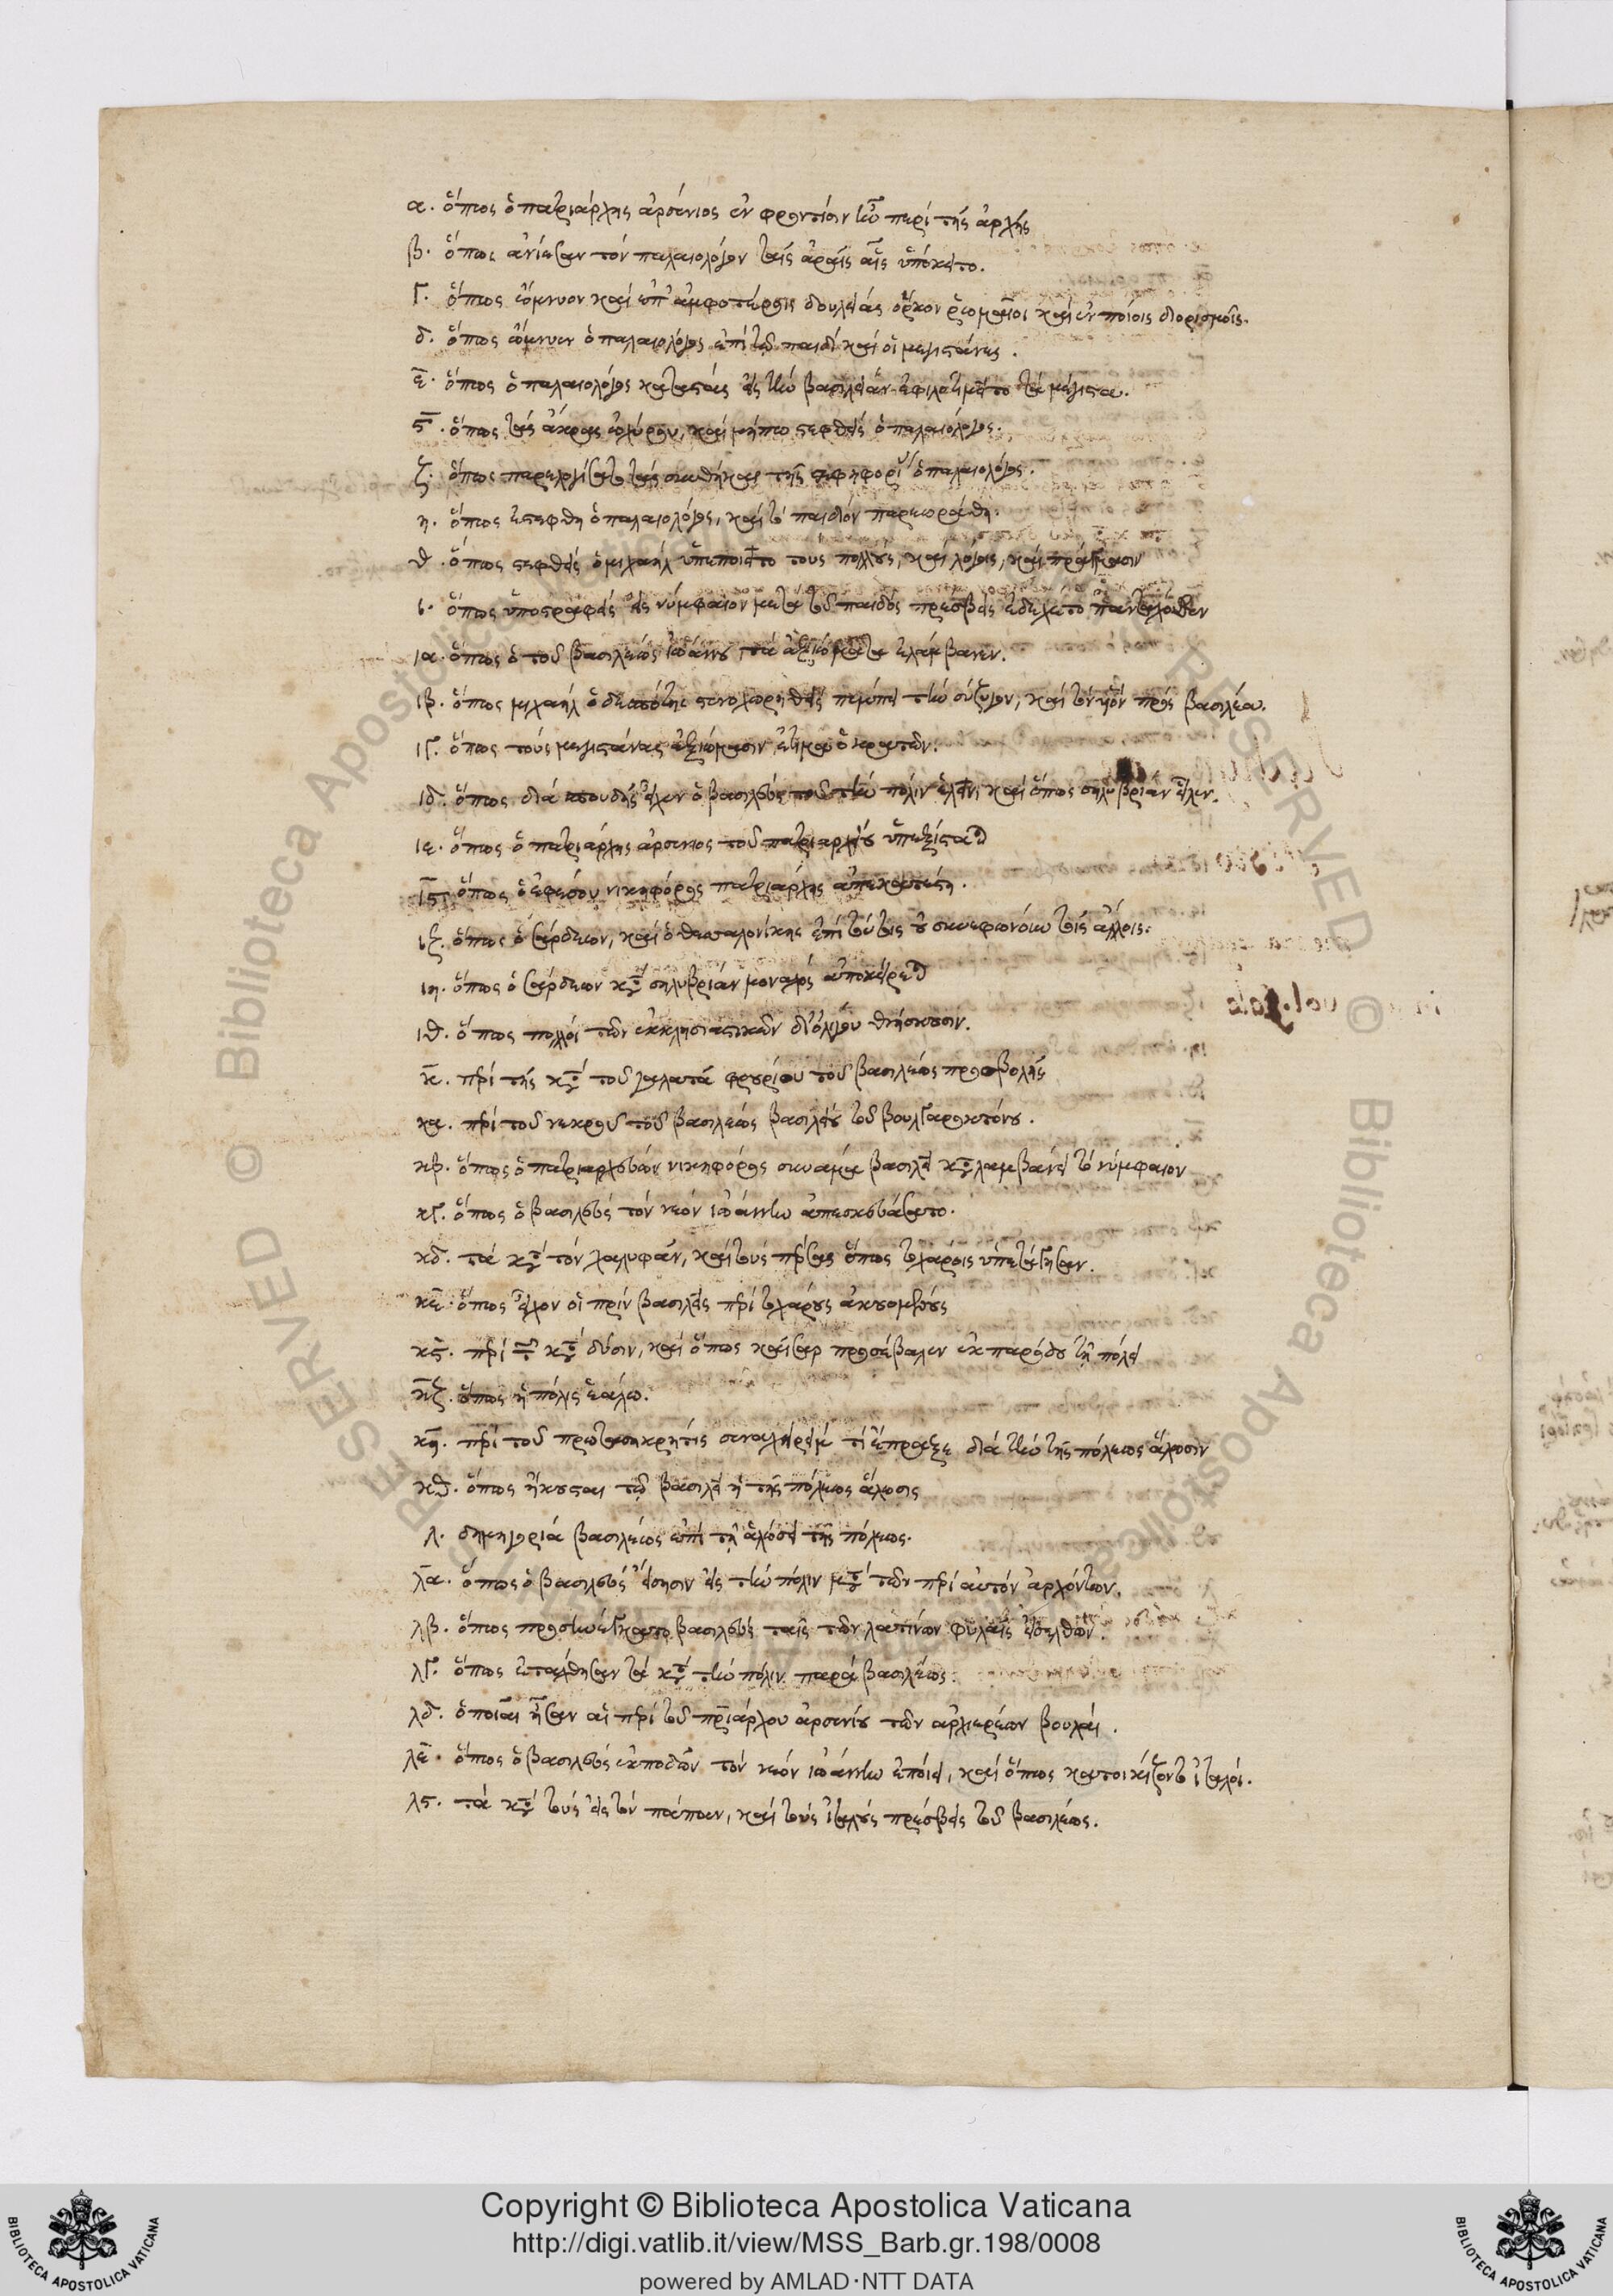 α. ὅπως ὁ πατριάρχης ἀρσένιος ἐν φροντίσιν ἦν περὶ τῆς ἀρχῆς
β. ὅπως ἀνίεσαν τὸν παλαιολόγον ταῖς ἀραῖς αἷς ὑπόκειτο.
γ. ὅπως ὤμνυον καὶ ἐπ' ἀμφοτέροις δουλείας ὅρκον ῥωμαῖοι καὶ ἐν ποίοις διορισμοῖς.
δ. ὅπως ὤμνυεν ὁ παλαιολόγος ἐπὶ τῷ παιδὶ καὶ οἱ μεγιστάνες.
ε. ὅπως ὁ παλαιολόγος καταστὰς εἰς τὴν βασιλείαν ἐφιλοτιμεῖτο τὰ μέγιστα.
ς. ὅπως τὰς ἄκρας ὠχύρου, καὶ μήπω στεφθεὶς ὁ παλαιολόγος.
ζ. ὅπως παρελογίσατο τὰς συνθήκας τῆς στεφηφορί ὁ παλαιολόγος.
η. ὅπως ἐστέφθη ὁ παλαιολόγος, καὶ τὸ παιδίον παρεωράθη.
θ. ὅπως στεφθεὶς ὁ μιχαὴλ ὑπεποιεῖτο τοὺς πολλοὺς, καὶ λόγοις, καὶ πράγμασιν
ι. ὅπως ὑποστραφεὶς εἰς νύμφαιον μετὰ τοῦ παιδὸς πρέσβεις ἐδέχετο πανταχόθεν
ια. ὅπως ὁ τοῦ βασιλέως ἰωάννου τὰ ἀξιώματα ἐλάμβανεν.
ιβ. ὅπως μιχαὴλ ὁ δεσπότης στενοχωρηθεὶς πέμπει τὴν σύζυγον, καὶ τὸν υἱὸν πρὸς βασιλέα.
ιγ. ὅπως τοὺς μεγιστάνας ἀξιώμασιν ἐτίμα ὁ κρατῶν.
ιδ. ὅπως διὰ σπουδῆς εἶχεν ὁ βασιλεὺς τοῦ τὴν πόλιν ἑλεῖν, καὶ ὅπως σηλυβρίαν εἷλεν.
ιε. ὅπως ὁ πατριάρχης ἀρσένιος τοῦ πατριαρχείου ὑπεξίσταται
ις. ὅπως ὁ ἐφέσου νικηφόρος πατριάρχης ἀποκατέστη.
ιζ. ὅπως ὁ σάρδεων, καὶ ὁ θεσσαλονίκης ἐπὶ τούτοις οὐ συνεφώνουν τοῖς ἄλλοις.
ιη. ὅπως ὁ σάρδεων κατὰ σηλυβρίαν μοναχὸς ἀποκείρεται
ιθ. ὅπως πολλοὶ τῶν ἐκκλησιαστικῶν δι' ὀλίγου θνήσκουσιν.
κ. περὶ τῆς κατὰ τοῦ γαλατᾶ φρουρίου τοῦ βασιλέως προσβολῆς
κα. περὶ τοῦ νεκροῦ τοῦ βασιλέως βασιλείου τοῦ βουλγαροκτόνου.
κβ. ὅπως ὁ πατριαρχεύων νικηφόρος συνάμα βασιλεῖ καταλαμβάνει τὸ νύμφαιον
κγ. ὅπως ὁ βασιλεὺς τὸν νέον ἰωάννην ἀπεσκευάσατο.
κδ. τὰ κατὰ τὸν χαλυφᾶν, καὶ τοὺς πέρσας ὅπως τοχάροις ὑπετάγησαν.
κε. ὅπως εἶχον οἱ πρὶν βασιλεῖς περὶ τοχάρους ἀκουομένους
κς. περὶ τῶν κατὰ δύσιν, καὶ ὅπως καῖσαρ προσέβαλεν ἐκ παρόδου τῇ πόλει
κζ. ὅπως ἡ πόλις ἑάλω.
κη. περὶ τοῦ πρωτασηκρῆτις σεναχηρεὶμ τί ἔπραξε διὰ τὴν τῆς πόλεως ἅλωσιν
κθ. ὅπως ἤκουσται τῷ βασιλεῖ ἡ τῆς πόλεως ἅλωσις
λ. δημηγορία βασιλέως ἐπὶ τῇ ἁλώσει τῆς πόλεως.
λα. ὅπως ὁ βασιλεὺς εἴσεισιν εἰς τὴν πόλιν μετὰ τῶν περὶ αὐτὸν ἀρχόντων.
λβ. ὅπως προσηνέγκατο βασιλεὺς ταῖς τῶν λατίνων φυλαῖς εἰσελθών.
λγ. ὅπως ἐτάχθησαν τὰ κατὰ τὴν πόλιν παρὰ βασιλέως.
λδ. ὁποῖαι ἦσαν αἱ περὶ τοῦ πατριάρχου ἀρσενίου τῶν ἀρχιερέων βουλαί.
λε. ὅπως ὁ βασιλεὺς ἐκποδὼν τὸν νέον ἰωάννην ἐποίει, καὶ ὅπως κατοικίζοντο ἰταλοί.
λς. τὰ κατὰ τοὺς εἰς τὸν πάπαν, καὶ τοὺς ἰταλοὺς πρέσβεις τοῦ βασιλέως.
Copyright © Biblioteca Apostolica Vaticana
http://digi.vatlib.it/view/MSS_Barb.gr.198/0008
powered by AMLAD·NTT DATA